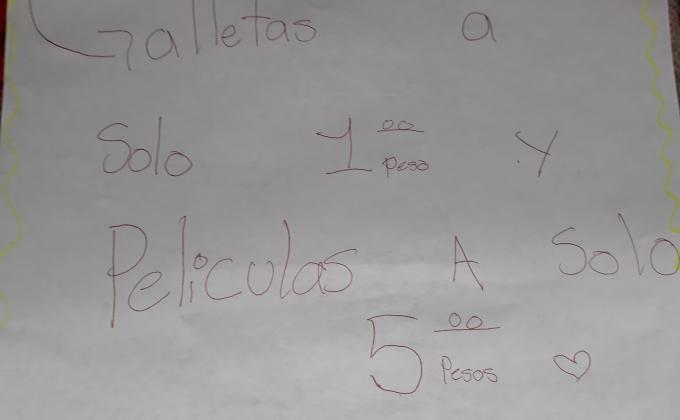 Galletas a
Solo 1 00 Peso y
Peliculas A Solo
5 00 Pesos